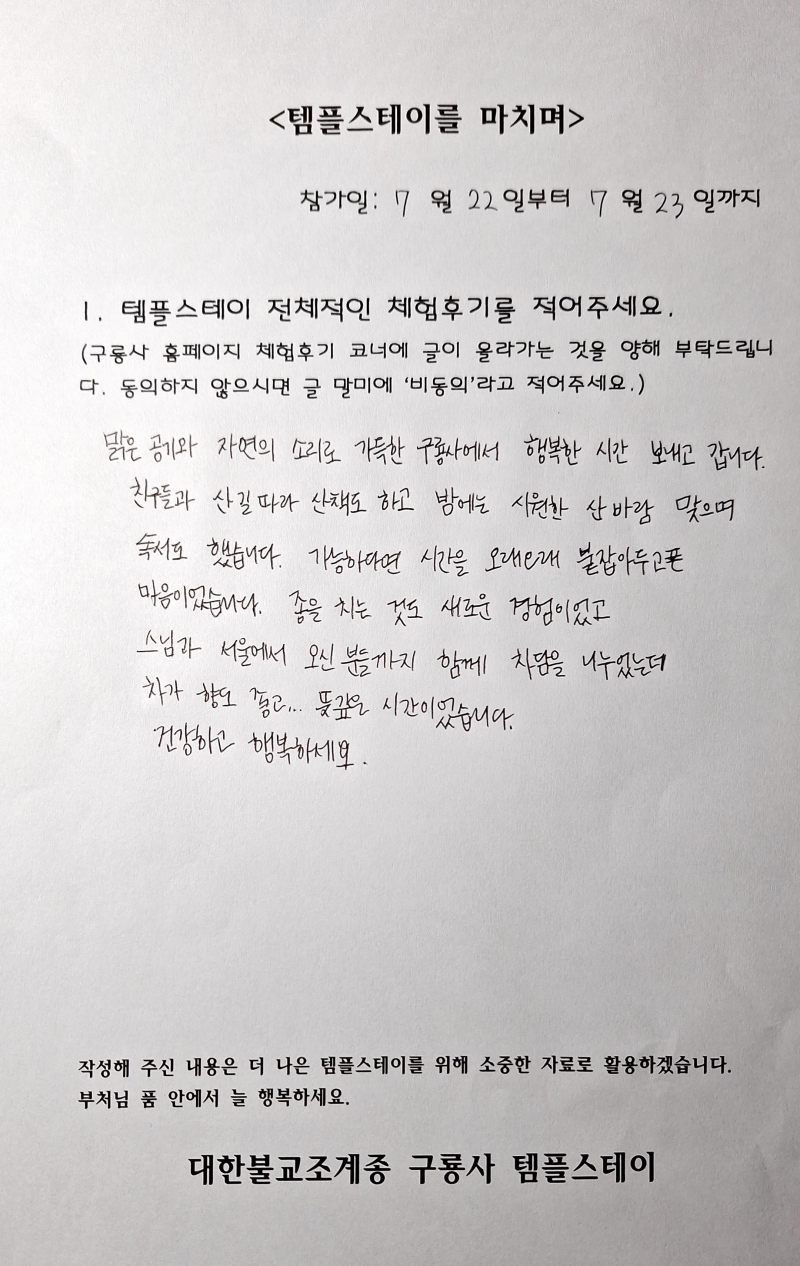 <템플스테이를 마치며>
참가일: 7 월 22 일부터 7 월 23 일까지
1. 템플스테이 전체적인 체험후기를 적어주세요.
(구룡사 홈페이지 체험후기 코너에 글이 올라가는 것을 양해 부탁드립니
다. 동의하지 않으시면 글 말미에 ‘비동의’라고 적어주세요.)
맑은 공기와 자연의 소리로 가득한 구룡사에서 행복한 시간 보내고 갑니다.
친구들과 산길 따라 산책도 하고 밤에는 시원한 산바람 맞으며
숙서도 했습니다. 가능하다면 시간을 오래오래 붙잡아두고픈
마음이었습니다. 종을 치는 것도 새로운 경험이었고
스님과 서울에서 오신 분들까지 함께 차담을 나누었는데
차가 향도 좋고... 뜻깊은 시간이었습니다.
건강하고 행복하세요.
작성해 주신 내용은 더 나은 템플스테이를 위해 소중한 자료로 활용하겠습니다.
부처님 품 안에서 늘 행복하세요.
대한불교조계종 구룡사 템플스테이